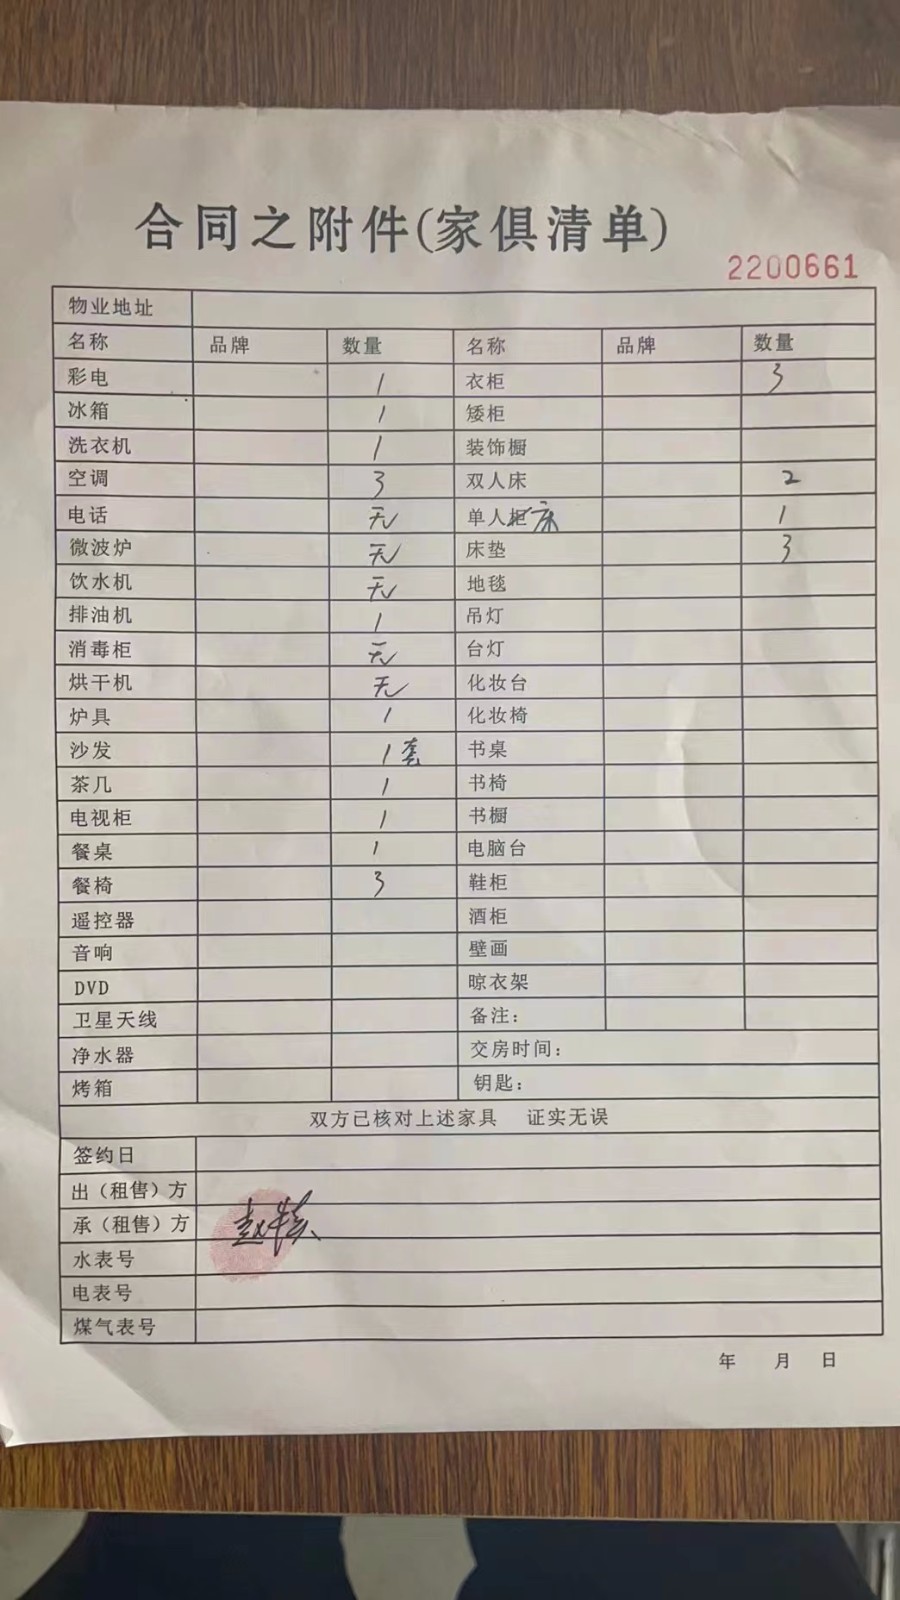 合同之附件(家俱清单)
2200661
物业地址
名称 品牌 数量 名称 品牌 数量
彩电 1 衣柜 3
冰箱 1 矮柜
洗衣机 1 装饰橱
空调 3 双人床 2
电话 无 单人柜床 1
微波炉 无 床垫 3
饮水机 无 地毯
排油机 1 吊灯
消毒柜 无 台灯
烘干机 无 化妆台
炉具 1 化妆椅
沙发 1套 书桌
茶几 1 书椅
电视柜 1 书橱
餐桌 1 电脑台
餐椅 3 鞋柜
遥控器 酒柜
音响 壁画
DVD 晾衣架
卫星天线 备注:
净水器 交房时间:
烤箱 钥匙:
双方已核对上述家具 证实无误
签约日
出(租售)方
承(租售)方
水表号
电表号
煤气表号
年 月 日